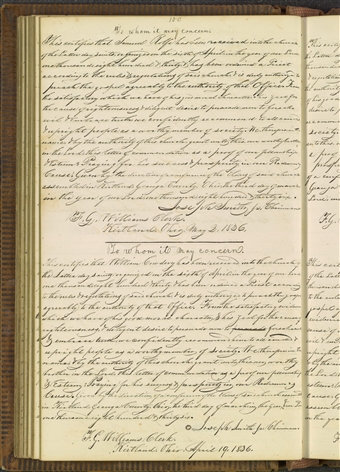 To whom it may concern
This certifies that Samuel Rolfe has been received into the church
of the Latter day saints, organized on the sixth of April in the year of our Lord
one thousand eight hundred & thirty & has been ordained a Priest
according to the rules & regulations of said church & is duly authorized to
preach the gospel agreeably to the authority of that Office. From
the satisfactory evidence we have of his good moral character & his zeal for
the cause of righteousness & diligent desire to persuade men to forsake
evil & embrace truth we confidently recommend him to all candid
& upright people as a worthy member of society. We therefore in the
name & by the authority of this church grant unto this our worthy brother
in the Lord this letter of commendation as a proof of our fellowship
& Esteem Praying for his success & prosperity in our Redeemers
Cause. Given by the direction of a conference of the Elders of said church
assembled in Kirtland Geauga County Ohio the third day of march
in the year of our Lord one thousand eight hundred thirty six.
Joseph Smith, Jr Chairman
F. G. Williams Clerk.
Kirtland Ohio May 2, 1836.
To whom it may concern.
This certifies that William Cowdery has been received into the church of
the Latter day saints organized on the sixth of April in the year of our Lord
one thousand eight hundred and thirty & has been ordained a Priest according
to the rules & regulations of said church & is duly authorized to preach the gospel
agreeably to the authority of that Office. From the satisfactory evidence
which we have of his good moral character & his zeal for the cause
righteousness & diligent desire to persuade men to forsake evil
& embrace truth we confidently recommend him to all candid &
upright people as a worthy member of society. We therefore in
the name & by the authority of this church grant unto this our worthy
brother in the Lord this letter of commendation as a proof of our fellowship
& Esteem Praying for his success & prosperity in our Redeemers
Cause. Given by the direction of a conference of the Elders of said church assembled
in Kirtland Geauga County Ohio the third day of march in the year of our Lord
one thousand eight hundred & thirty six.
Joseph Smith Jr. Chairman
F. G. Williams. Clerk.
Kirtland Ohio April 19. 1836.